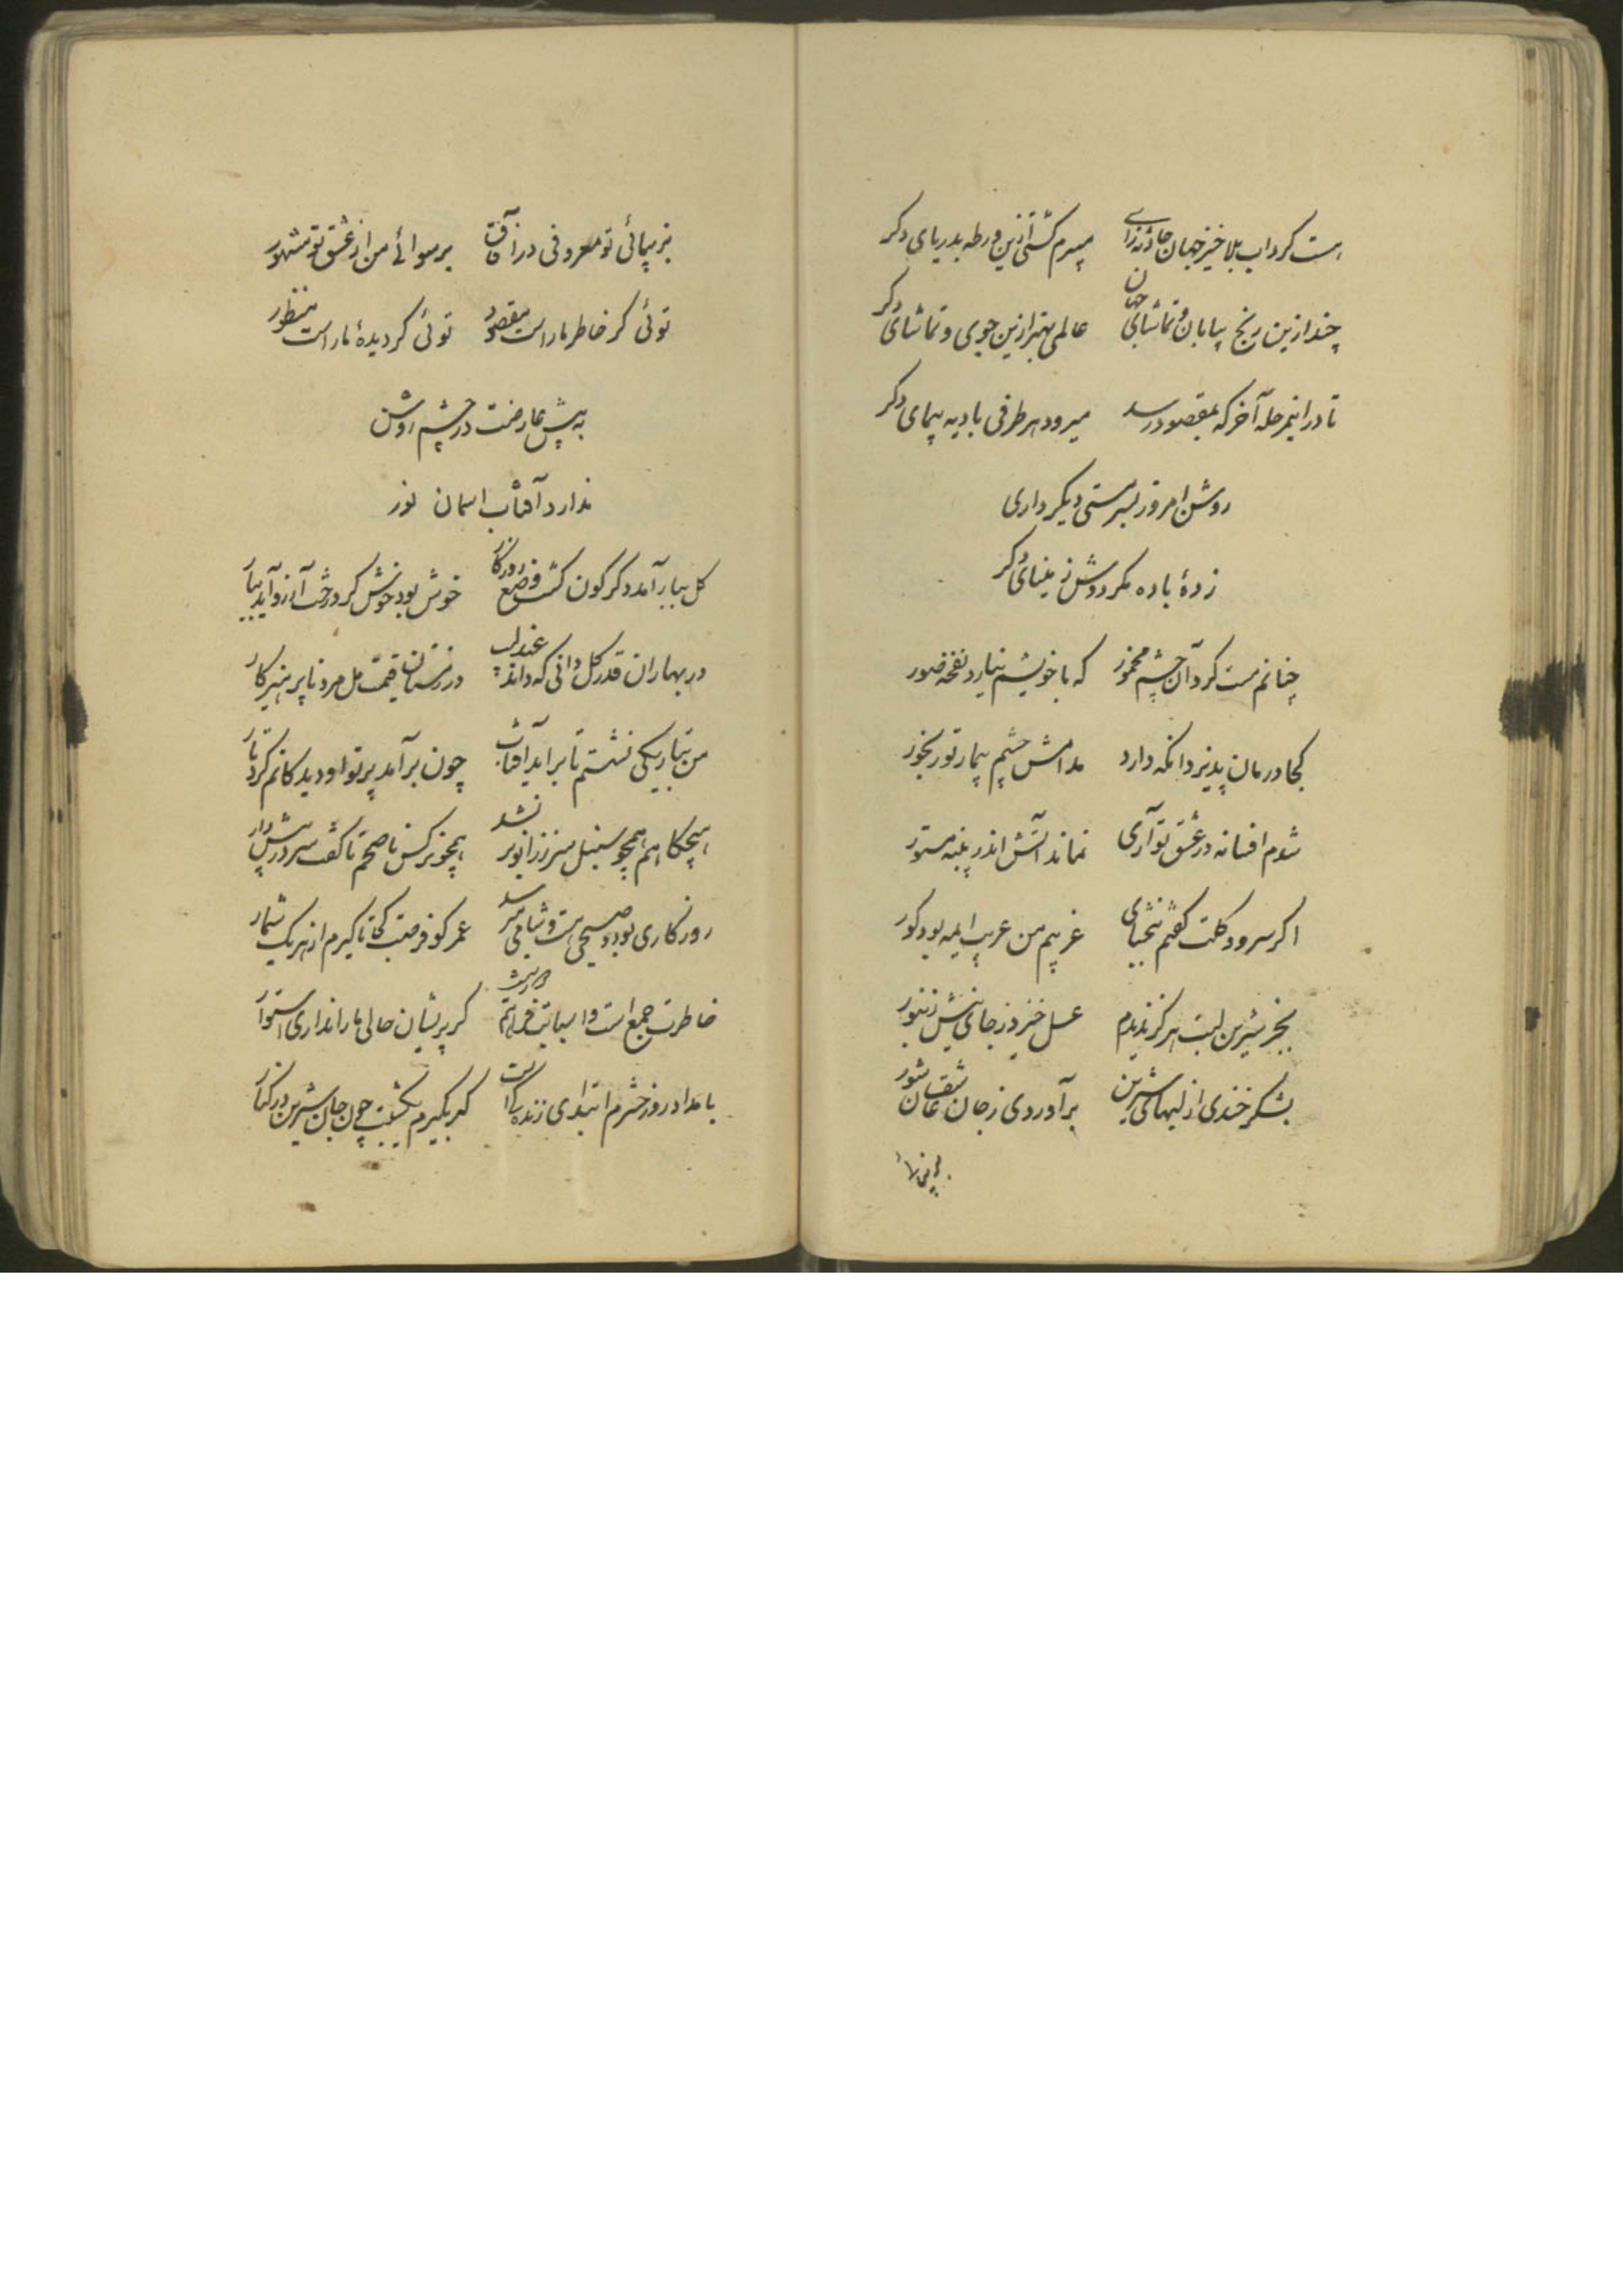 هست کرداب بلا خیز جهان حادثه زای میبرم کشتی ازین ورطه بدریای دکر
چند ازین رنج بیابان و تماشای جهان عالمی بهتر ازین جوی و تماشای دکر
تا در اینمرحله آخر که بمقصود رسد میرود هر طرفی بادیه پیمای دکر
روشن امروز بسرمستی دیکر داری
زدهٔ باده مکر دوش ز مینای دکر
چنانم مست کرد آن چشم مخمور که با خویشم نیارد نفخه صور
کجا درمان پذیرد انکه دارد مدامش چشم بیمار تو رنجور
شدم افسانه در عشق تو آری نماند آتش اندر پنبه مستور
اکر سرو و کلت کفتم ببخشای غریبم من غریب ایمه بود کور
بجز شیرین لبت هرکز ندیدم عسل خیزد ز جای نیش زنبور
بشکر خندی از لبهای شیرین برآوردی ز جان عاشقان شور
بزیبائی تو معروفی در آفاق برسوائے من از عشق تو مشهور
توئی کر خاطر ما راست مقصود توئی کر دیدهٔ ما راست منظور
به پیش عارضت در چشم روشن
ندارد آفتاب اسمان نور
کل ببار آمد دکرکون کشت وضع روزکار خوش بود خوش کر درخت آرزو آید ببار
در بهاران قدر کل دانی که داند عندلیب در زمستان قیمت مل مرد ناپرهیزکار
من بتاریکی نشستم تا براید آفتاب چون برآمد پرتو او دیدکانم کرد تار
هیچکاهم همچو سنبل سر ز زانو بر نشد همچو نرکس ناصحم تا کفت سر در پیش دار
روزکاری بود و صبحی هست و شامی میرسد عمر کو فرصت کجا تا کیرم از هر یک شمار
خاطرت جمع است و اسبابت فراهم کر پریشان حالی ما را نداری استوار
بامداد روز حشرم ابتدای زندکیست کر بکیرم یکشبت چون جان شیرین در کنار